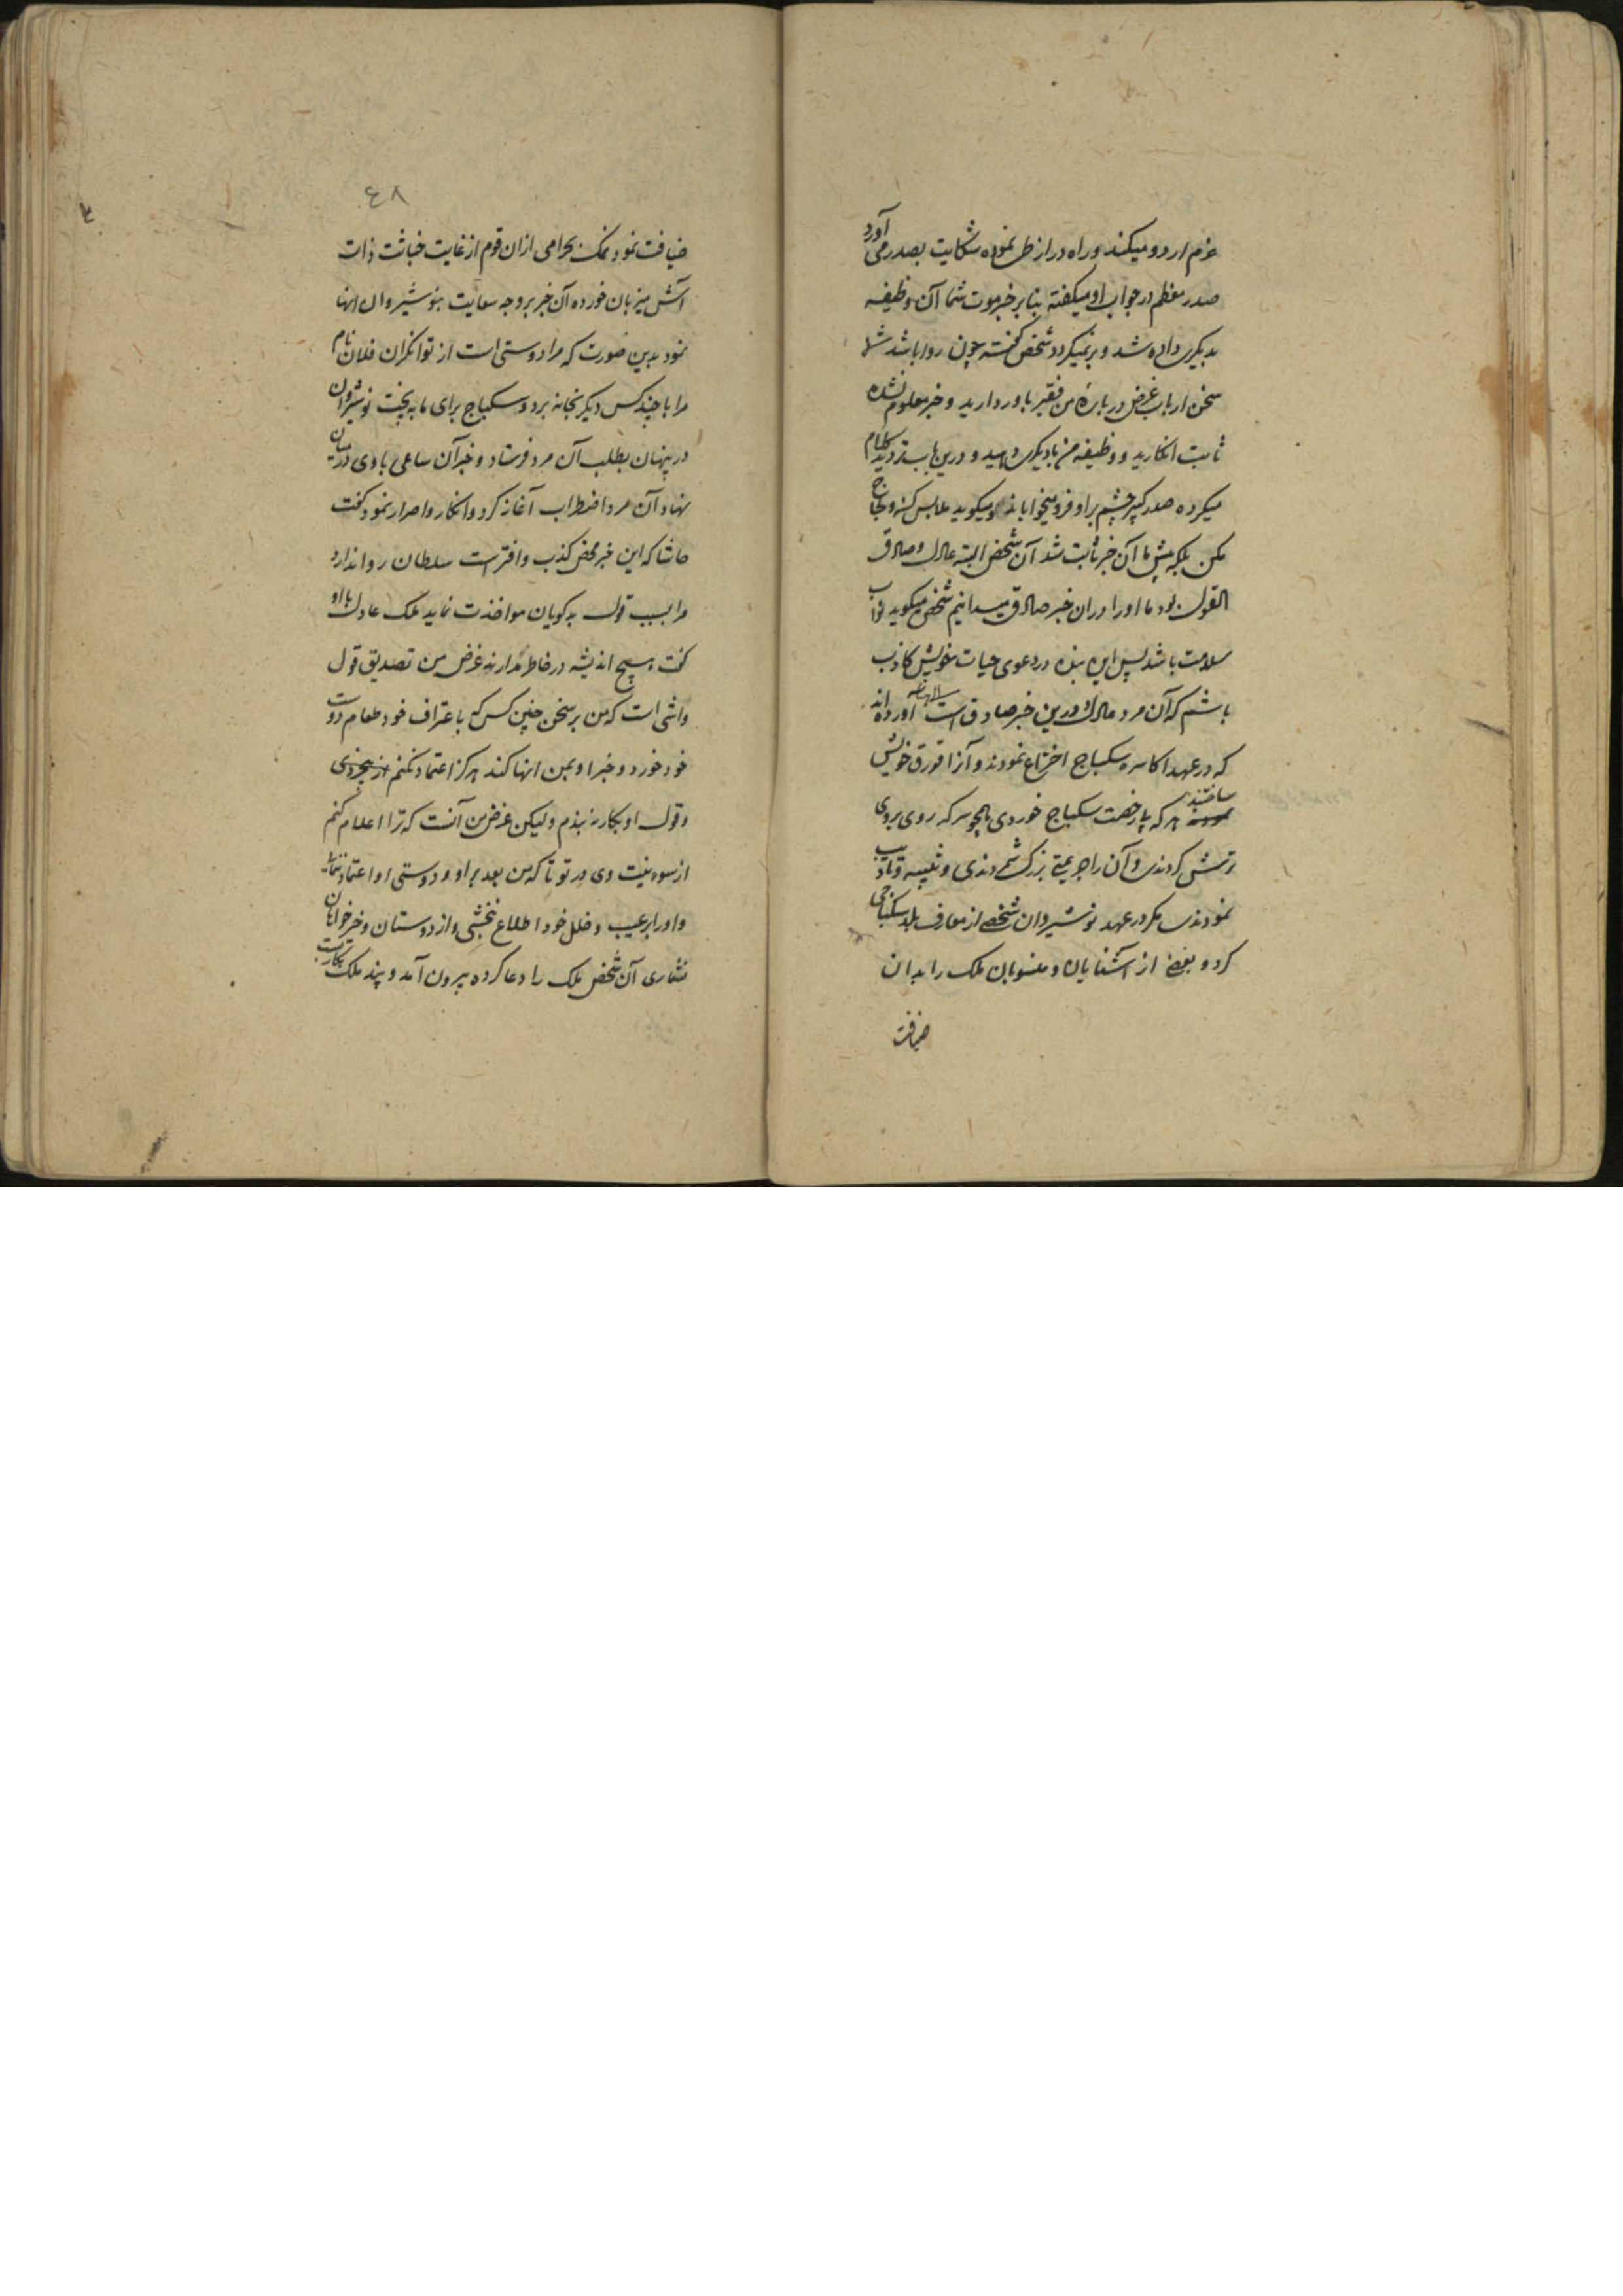 عزم اردو میکند و راه دراز طی نموده شکایت بصدر می آورد
صدر معظم در جواب او میگفته بنابر خبر موت شما آن وظیفه
بدیگری داده شد و برنمیگردد شخص گفته چون روا باشد شما
سخن ارباب غرض در باره من فقیر باور دارید و خبر معلوم نشده
ثابت انگارید و وظیفه من بدیگری دهید و درین باب تردید کلام
میکرده صدر کبیر چشم بر او فرو میخواباند و میگوید ملابس کنه و لجاج
مکن بلکه پیش ما آن خبر ثابت شد آن شخص البته عادل و صادق
القول بود ما او را در آن خبر صادق میدانیم شخص میگوید نواب
سلامت باشد پس این بنده در دعوی حیات خویش کاذب
باشم که آن مرد عادل و درین خبر صادق است آورده اند
که در عهد اکاسره سکباج اختراع نمودند و آنرا قورق خویش
ساختند هر که بی رخصت سکباج خوردی همچو سرکه روی بروی
ترشی کردندی و آن را جریمتی بزرگ شمردندی و تنبیه و تادیب
نمودندی مگر در عهد نوشیروان شخصی از معارف بلد سکباجی
کرد و بعضی از آشنایان و منسوبان ملک را بدان
ضیافت
۴۸
ضیافت نمود نمک بحرامی ازان قوم از غایت خباثت ذات
آش میزبان خورده آن خبر بر وجه سعایت بنوشیروان انها
نمود بدین صورت که مرا دوستی است از توانگران فلان نام
مرا با چند کس دیگر بخانه برد و سکباج برای ما به پخت نوشیروان
در پنهان بطلب آن مرد فرستاد و خبر آن ساعی با وی در میان
نهاد آن مرد اضطراب آغاز کرد و انکار و اصرار نمود گفت
حاشا که این خبر محض کذب و افتراست سلطان روا ندارد
مرا بسبب قول بدگویان مواخذت نماید ملک عادل با او
گفت هیچ اندیشه در خاطر مدار نه غرض من تصدیق قول
واشی است که من بر سخن چنین کس که باعتراف خود طعام دوست
خود خورد و خبر او بمن انها کند هرگز اعتماد نکنم
و قول او بکار نبندم ولیکن غرض من آنست که ترا اعلام کنم
از سوء نیت وی در تو تا که من بعد بر او و دوستی او اعتماد ننمائی
و او را بر عیب و خلل خود اطلاع نبخشی و از دوستان و خیرخواهان
نشماری آن شخص ملک را دعا کرده بیرون آمد و پند ملک بکار بست